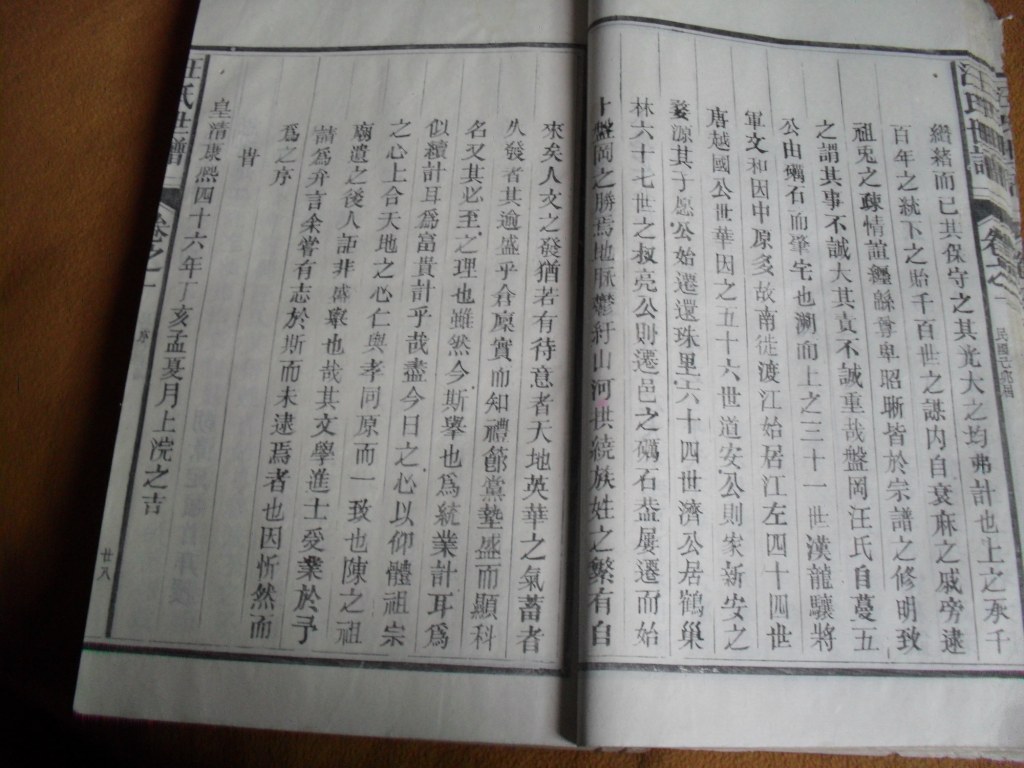 汪氏世譜
卷之一
緒而已其保守之其光大之均弗計也上之承千
百年之統下之貽千百世之謀内自衰麻之戚旁逮
祖免之疎情誼纏緜尊卑昭晰皆於宗譜之修明致
之謂其事不誠大其責不誠重哉盤岡汪氏自蔓五
公由礪石而肇宅也溯而上之三十一世漢龍驤將
軍文和因中原多故南徙渡江始居江左四十四世
唐越國公世華因之五十六世道安公則家新安之
婺源其子愿公始遷還珠里六十四世濟公居鶴巢
林六十七世之叔亮公則遷邑之礪石葢屢遷而始
卜盤岡之勝焉地脈鬱紆山河拱繞族姓之繁有自
來矣人文之發猶若有待意者天地英華之氣蓄者
久發者其逾盛乎倉廪實而知禮節黨塾盛而顯科
名又其必至之理也雖然今斯舉也爲統業計耳爲
似續計耳爲富貴計乎哉盡今日之心以仰體祖宗
之心上合天地之心仁與孝同原而一致也陳之祖
廟遺之後人詎非盛歟也哉其文學進士受業於予
請爲弁言余嘗有志於斯而未逮焉者也因忻然而
爲之序
皇清康熙四十六年丁亥孟夏月上浣之吉
汪氏世譜
卷之一
序
廿八